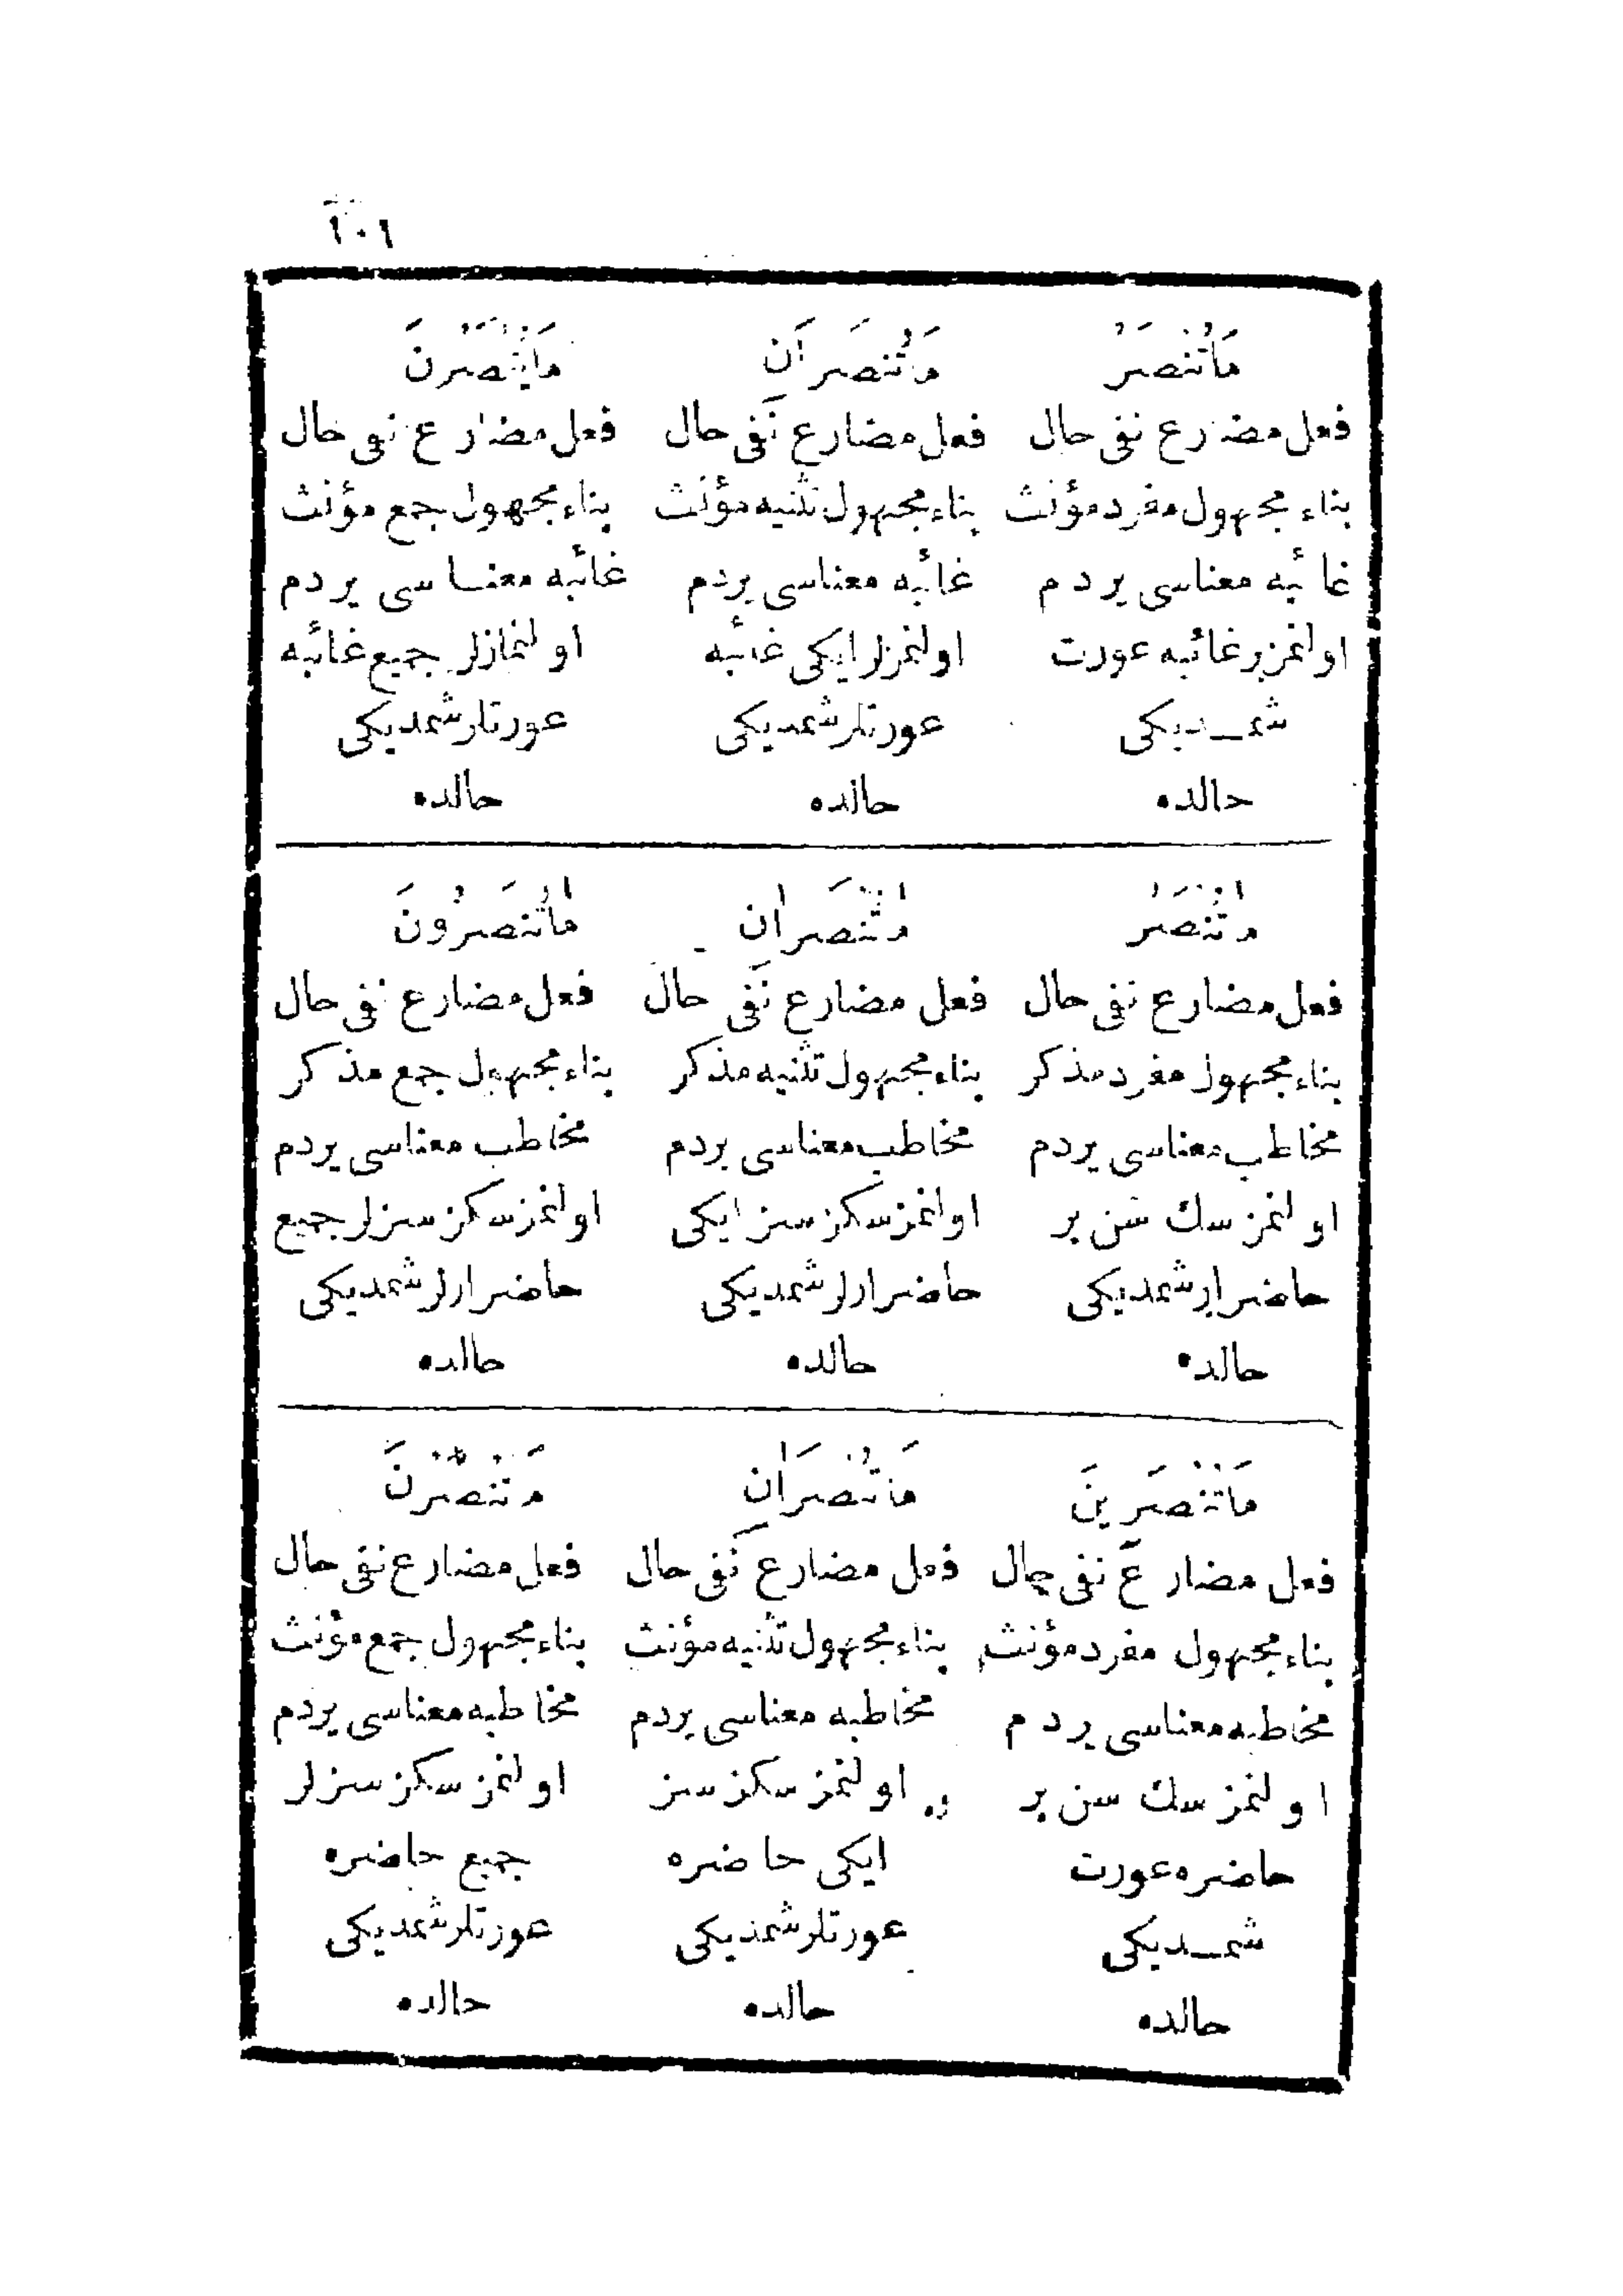 ١٠٦
مَاتُنْصَرُ
فعل مضارع نفی حال
بناء مجهول مفرد مؤنث
غائبه معناسی یردم
اولنمز بر غائبه عورت
شمدیکی
حالده
مَاتُنْصَرَانِ
فعل مضارع نفی حال
بناء مجهول تثنیه مؤنث
غائبه معناسی یردم
اولنمزلر ایکی غائبه
عورتلر شمدیکی
حالده
مَايُنْصَرْنَ
فعل مضارع نفی حال
بناء مجهول جمع مؤنث
غائبه معناسی یردم
اولنمازلر جمیع غائبه
عورتلر شمدیکی
حالده
مَاتُنْصَرُ
فعل مضارع نفی حال
بناء مجهول مفرد مذکر
مخاطب معناسی یردم
اولنمز سك سن بر
حاضر ار شمدیکی
حالده
مَاتُنْصَرَانِ
فعل مضارع نفی حال
بناء مجهول تثنیه مذکر
مخاطب معناسی یردم
اولنمز سکز سز ایکی
حاضر ارلر شمدیکی
حالده
مَاتُنْصَرُونَ
فعل مضارع نفی حال
بناء مجهول جمع مذکر
مخاطب معناسی یردم
اولنمز سکز سزلر جمیع
حاضر ارلر شمدیکی
حالده
مَاتُنْصَرِينَ
فعل مضارع نفی حال
بناء مجهول مفرد مؤنث
مخاطبه معناسی یردم
اولنمز سك سن بر
حاضره عورت
شمدیکی
حالده
مَاتُنْصَرَانِ
فعل مضارع نفی حال
بناء مجهول تثنیه مؤنث
مخاطبه معناسی یردم
اولنمز سکز سز
ایکی حاضره
عورتلر شمدیکی
حالده
مَاتُنْصَرْنَ
فعل مضارع نفی حال
بناء مجهول جمع مؤنث
مخاطبه معناسی یردم
اولنمز سکز سزلر
جمیع حاضره
عورتلر شمدیکی
حالده